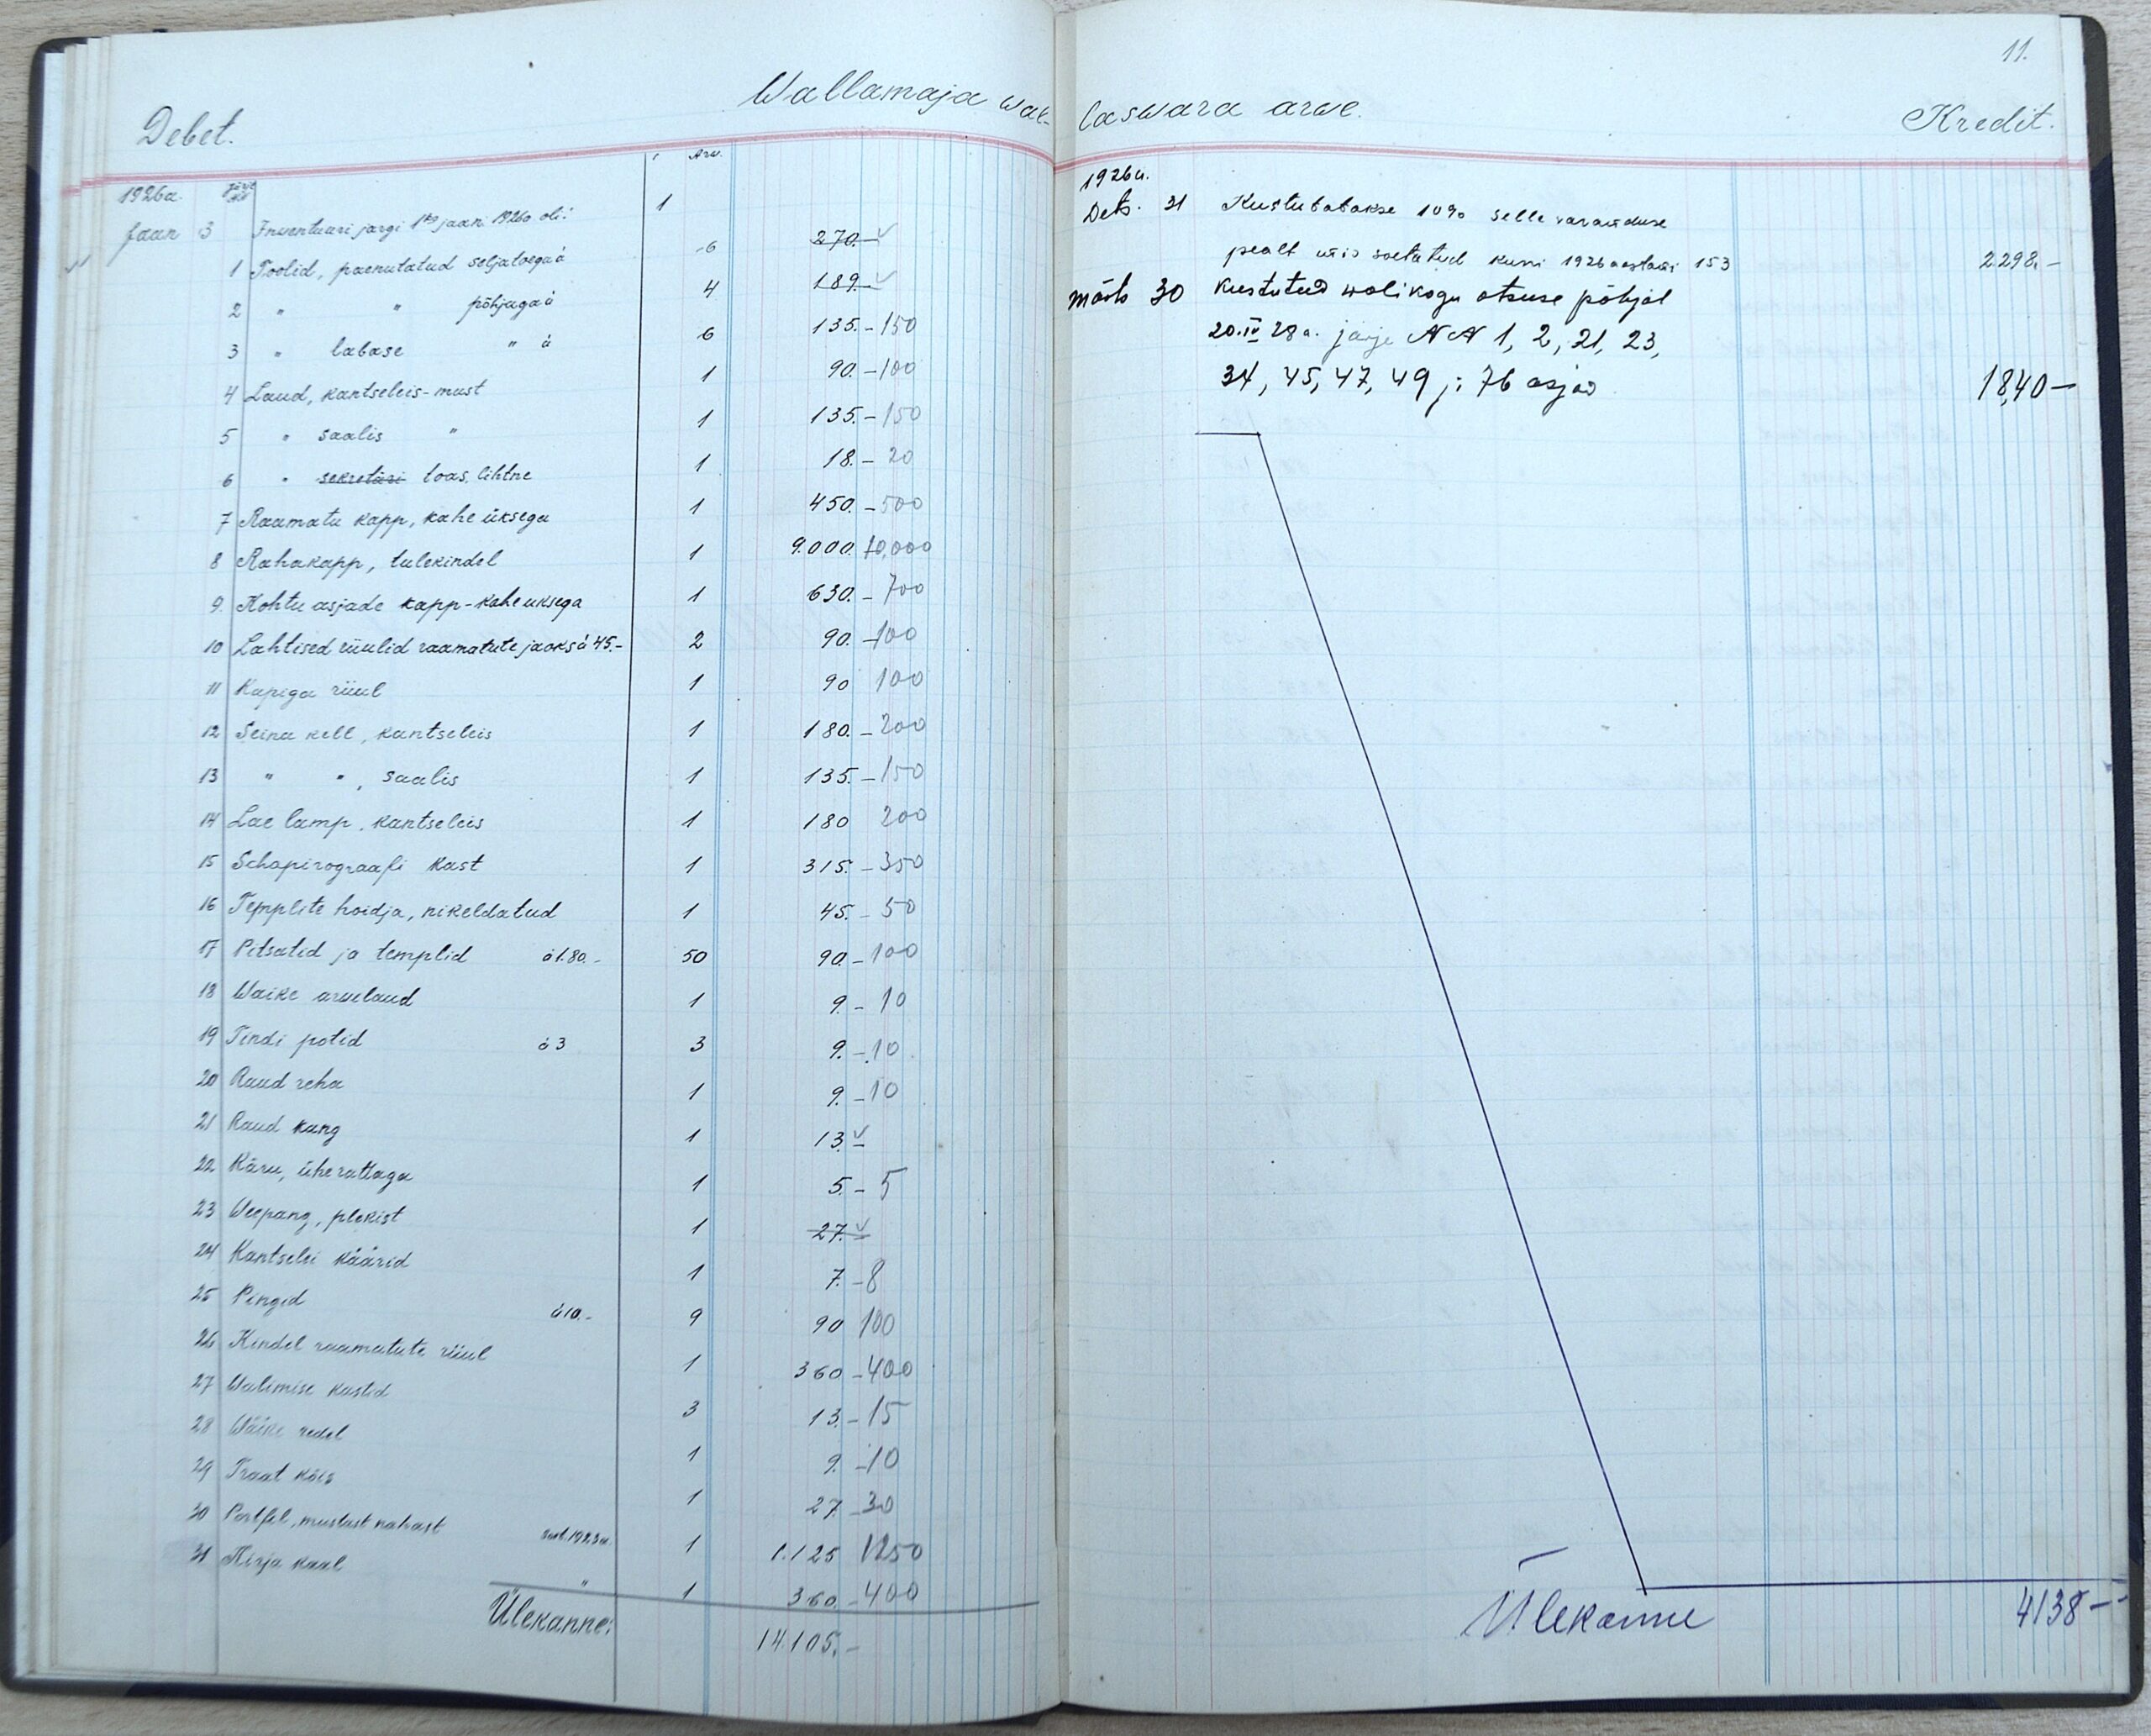 11.
Debet. Wallamaja wal-
1926a. Arv.
Jaan 3 Inventuari järgi 1ks jaan. 1926a oli: 1
1 Toolid, paenutatud seljatoega à 6 270.- ✓
2 " " põhjaga à 4 189.- ✓
3 " labase " à 6 135.- 150
4 Laud, kantseleis-must 1 90.- 100
5 " saalis " 1 135.- 150
6 " sekretäri toas, lihtne 1 18.- 20
7 Raamatu kapp, kahe üksega 1 450.- 500
8 Rahakapp, tulekindel 1 9.000. 10,000
9. Kohtu asjade kapp-kahe uksega 1 630.- 700
10 Lahtised riiulid raamatute jaoks à 45.- 2 90.- 100
11 Kapiga riiul 1 90 100
12 Seina kell, kantseleis 1 180.- 200
13 " ", saalis 1 135.- 150
14 Lae lamp, kantseleis 1 180 200
15 Schapirograafi kast 1 315.- 350
16 Templite hoidja, nikeldatud 1 45.- 50
17 Pitsatid ja templid à 1.80.- 50 90.- 100
18 Waike arvelaud 1 9.- 10
19 Tindi potid à 3 3 9.- 10.
20 Raud reha 1 9.- 10
21 Raud kang 1 13.- ✓
22 Käru, üherattaga 1 5.- 5
23 Weepang, plekist 1 27.- ✓
24 Kantselei käärid 1 7.- 8
25 Pingid à 10.- 9 90 100
26 Kindel raamatute riiul 1 360 - 400
27 Walimise kastid 3 13.- 15
28 Wäike redel 1 9.- 10
29 Traat köis 1 27 - 30
30 Portfel, mustast nahast soet. 1923a. 1 1.125 1250
31 Kirja kaal " 1 360.- 400
Ülekanne: 14.105.-
laswara arwe. Kredit.
1926a.
Dets. 31 Kustutatakse 10% selle varanduse
pealt mis soetatud kuni 1926 aastani 153 2.298.-
Märts 30 Kustutud wolikogu otsuse põhjal
20.IV 28a. järje NN 1, 2, 21, 23,
34, 45, 47, 49 ja 76 asjad 18,40 -
Ülekanne 4138 -